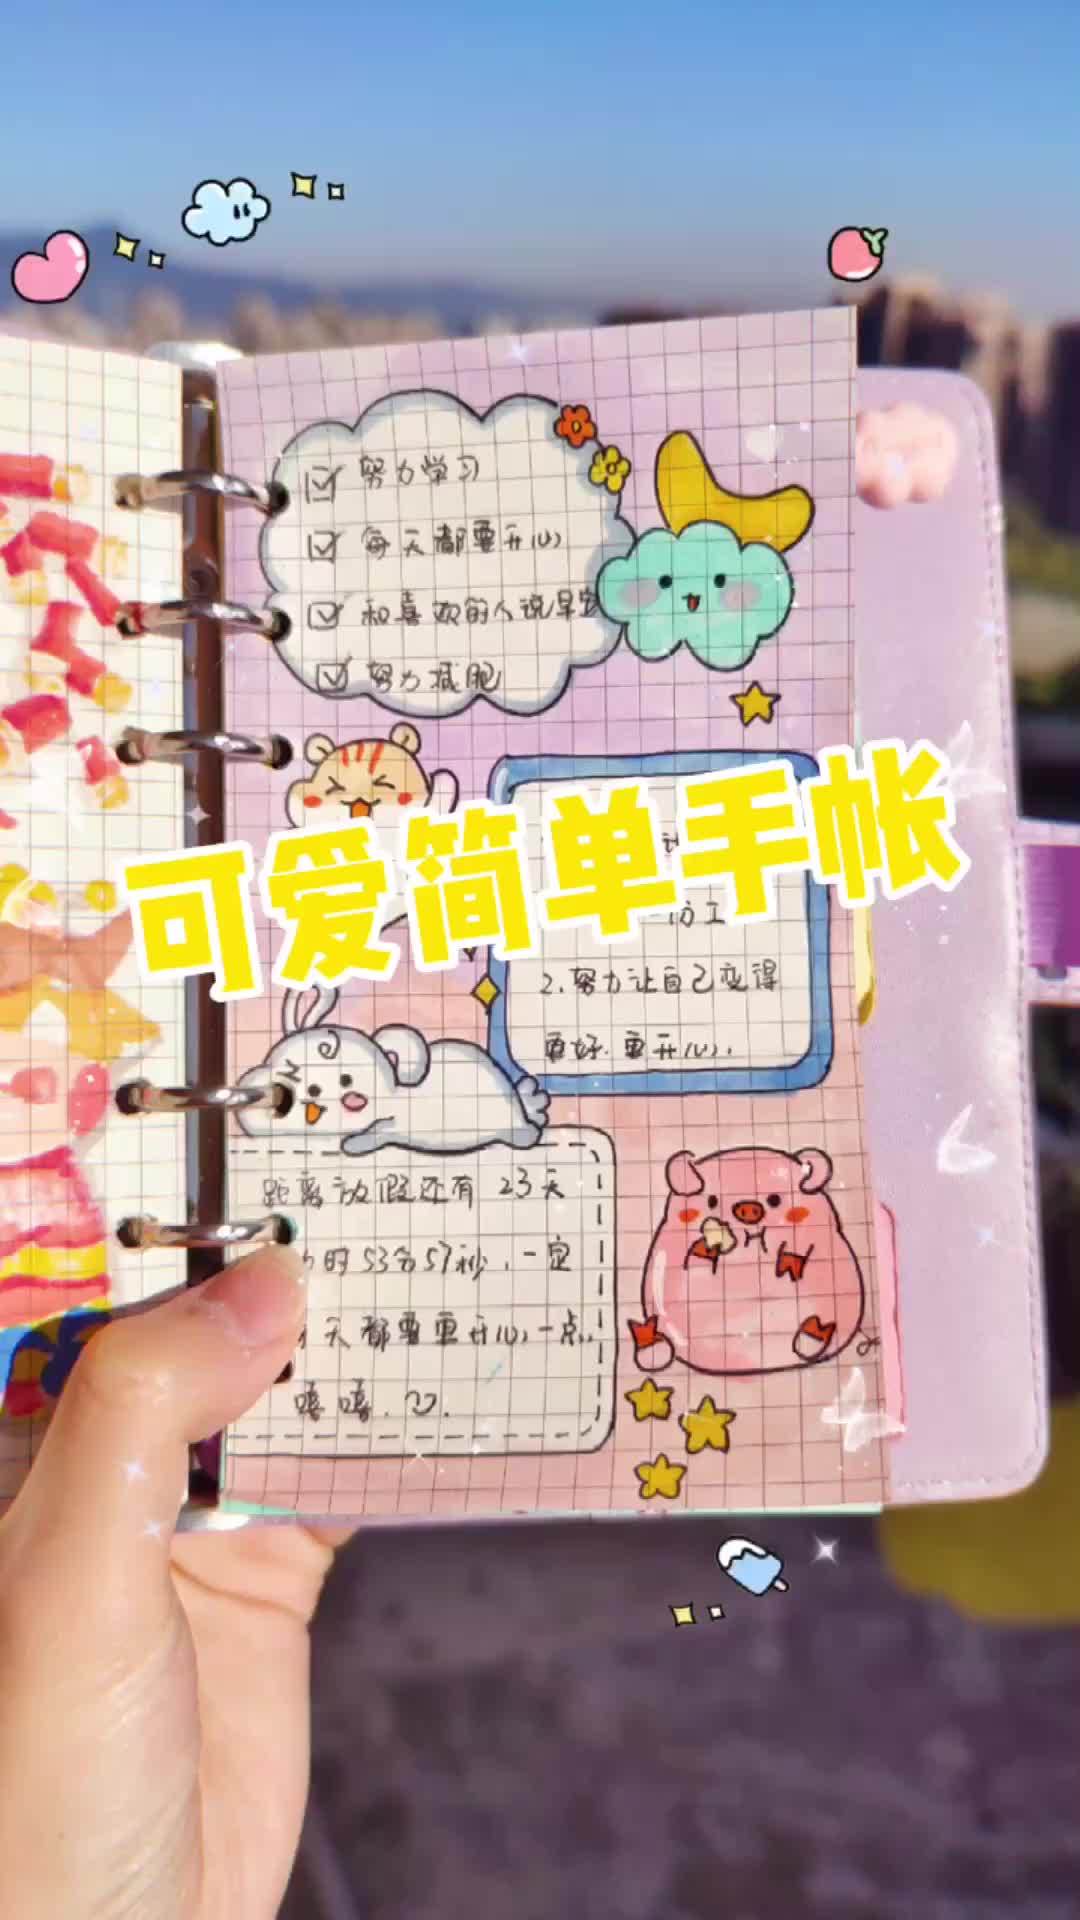 努力学习
每天都要开心
和喜欢的人说早安
努力减肥
可爱简单手帐
2.努力让自己变得
更好.更开心.
距离放假还有 23天
时53分57秒.一定
天都要更开心一点.
嘻嘻.